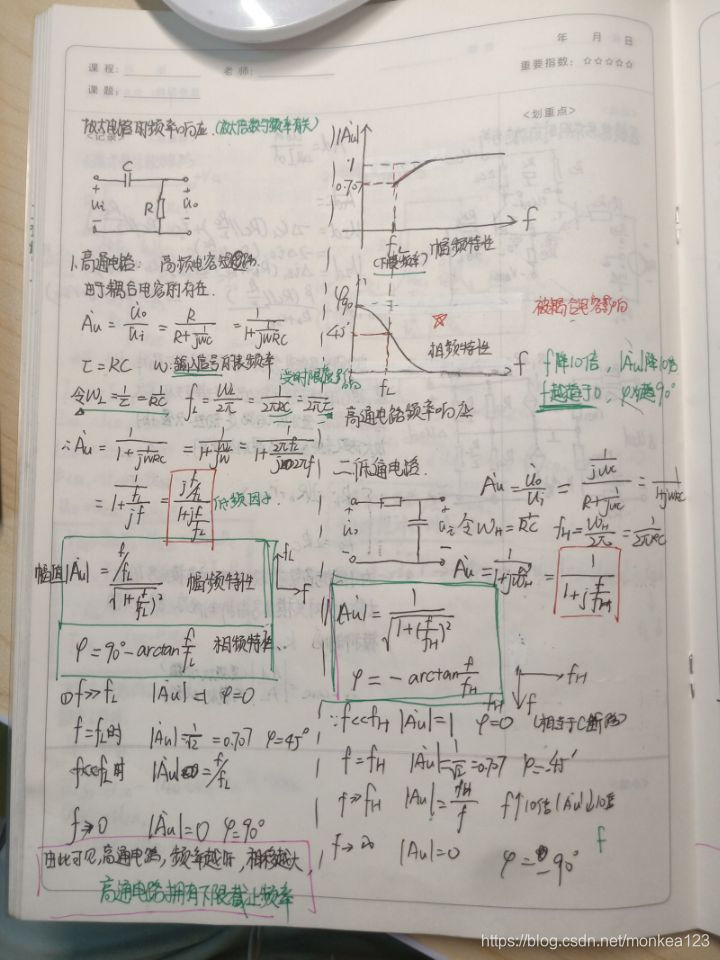 年 月 日
课程: 老师:
重要指数: ☆☆☆☆☆
课题:
<划重点>
放大电路的频率响应 (放大倍数与频率有关)
C
+ + U̇i R U̇o - -
1. 高通电路: 高频电容短路
由于耦合电容的存在.
Ȧu = U̇o/U̇i = R/(R+1/jwC) = 1/(1+1/jwRC)
τ=RC w: 输入信号的角频率
令 W_L = 1/τ = 1/RC f_L = W_L/2π = 1/2πRC = 1/2πτ
∴ Ȧu = 1/(1+1/jwRC) = 1/(1+W_L/jw) = 1/(1+2πf_L/j2πf)
= 1/(1+f_L/jf) = (j f/f_L)/(1+j f/f_L) 低频因子
幅值 |Ȧu| = (f/f_L)/√(1+(f/f_L)²) 幅频特性
f_L
f
φ = 90°-arctan f/f_L 相频特性
① f≫f_L |Ȧu|=1 φ=0
f=f_L时 |Ȧu|=1/√2=0.707 φ=45°
f≪f_L时 |Ȧu|=f/f_L
f→0 |Ȧu|=0 φ=90°
由此可见,高通电路,频率越低,相移越大,
高通电路拥有下限截止频率
|Ȧu|
1
0.707
f
f_L 幅频特性
(下限频率)
φ
90°
45°
☆
相频特性
f
f_L
被耦合电容影响
f降10倍, |Ȧu|降10倍
f越趋于0, φ越趋90°
高通电路频率响应
二.低通电路.
+ + U̇o U̇i - -
Ȧu = U̇o/U̇i = (1/jwC)/(R+1/jwC) = 1/(1+jwRC)
令 W_H = 1/RC f_H = W_H/2π = 1/2πRC
Ȧu = 1/(1+j w/w_H) = 1/(1+j f/f_H)
|Ȧu| = 1/√(1+(f/f_H)²)
φ = -arctan f/f_H
f_H
f
∵ f≪f_H |Ȧu|=1 φ=0 (相当于C断路)
f=f_H |Ȧu|=1/√2=0.707 φ=-45°
f≫f_H |Ȧu|=f_H/f f↑10倍 |Ȧu|↓10倍
f
f→∞ |Ȧu|=0 φ=-90°
https://blog.csdn.net/monkea123